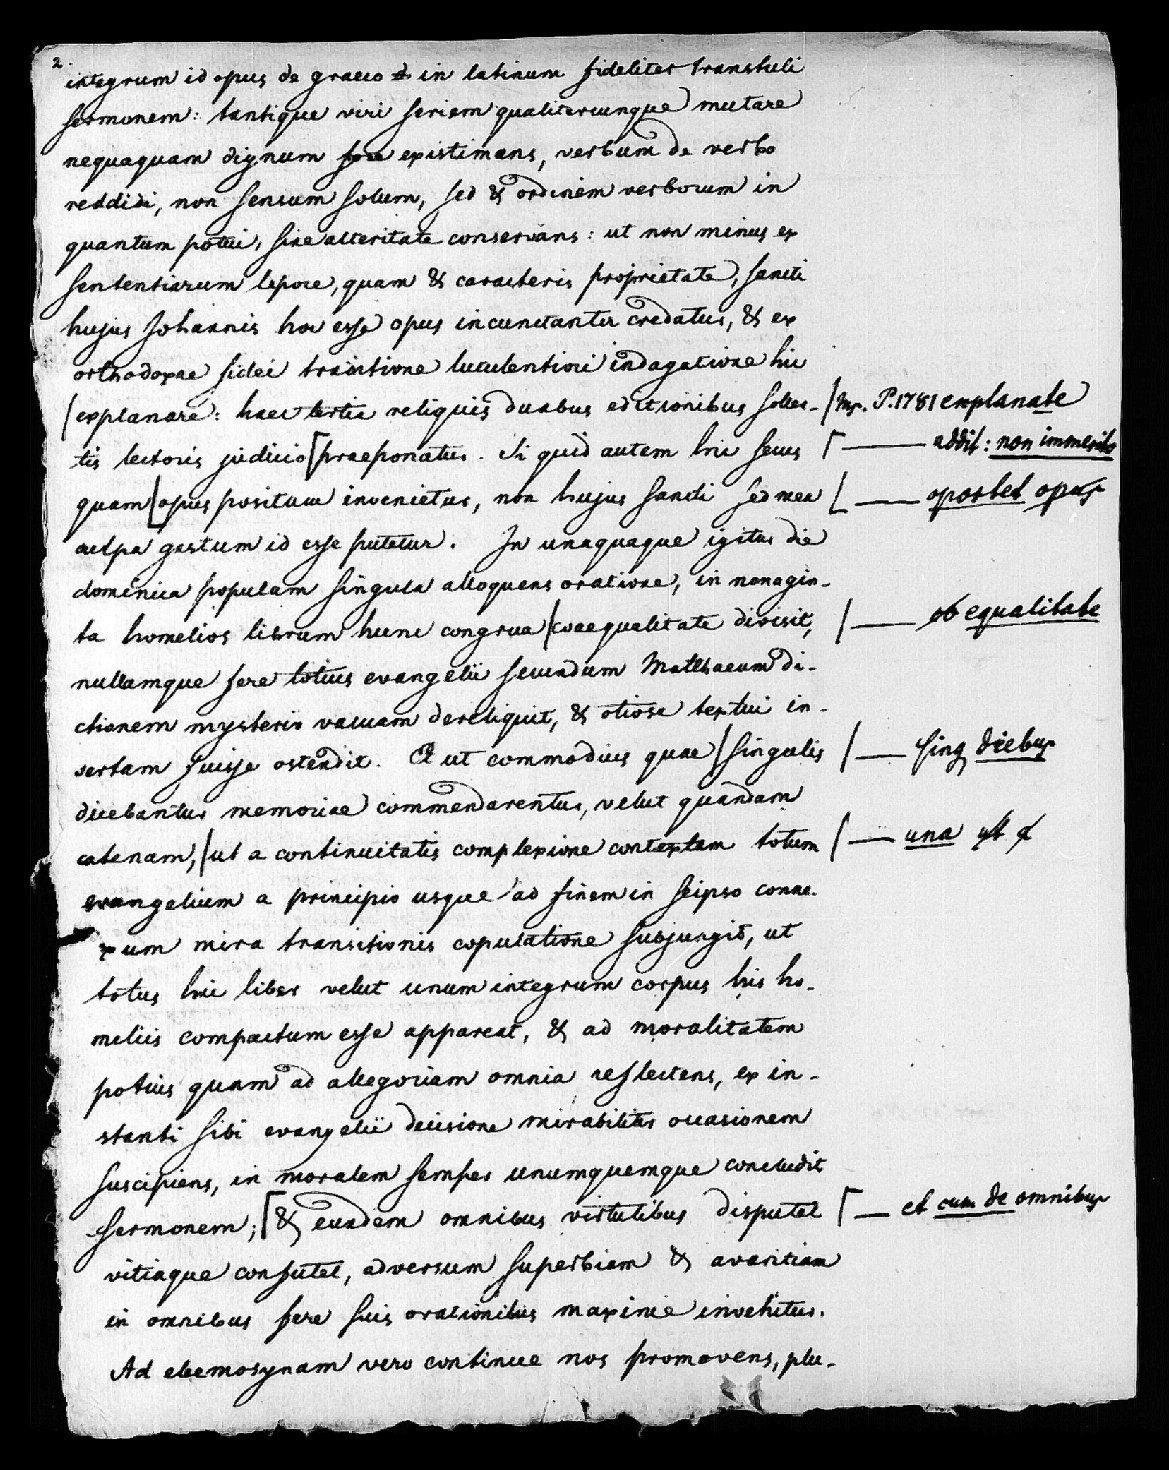 2.
integrum id opus de graeco & in latinum fideliter transtuli
sermonem: tantique viri seriem qualitercunque mutare
nequaquam dignum fore existimans, verbum de verbo
reddidi, non sensum solum, sed & ordinem verborum in
quantum potui, sine alteritate conservans: ut non minus ex
sententiarum lepore, quam & caracteris proprietate, sancti
hujus Johannis hoc esse opus incunctanter credatur, & ex
orthodoxae fidei traditione luculentiori indagatione hic
/explanare: haec tertia reliquis duabus editionibus soller- / Mſ. P. 1781 explanate
tis lectoris judicio ⌈praeponatur. Si quid autem hic secus ⌈ — addit: non immerito
quam ⌊opus positum invenietur, non hujus sancti sed mea ⌊ — oportet opus
culpa gestum id esse putetur. In unaquaque igitur die
dominica populum singula alloquens oratione, in nonagin-
ta homelios librum hunc congrua /coaequalitate divisit, / — ob equalitate
nullamque fere totius evangelii secundum Matthaeum di-
ctionem mysterio vacuam dereliquit, & otiose textui in-
sertam fuisse ostendit. Et ut commodius quae /singulis / — sing diebus
dicebantur memoriae commendarentur, velut quandam
catenam, /ut a continuitatis complexione contextam totum / — una
evangelium a principio usque ad finem in seipso conne-
xum mira transitionis copulatione subjungit, ut
totus hic liber velut unum integrum corpus his ho-
meliis compactum esse appareat, & ad moralitatem
potius quam ad allegoriam omnia reflectens, ex in-
stanti sibi evangelii decisione mirabiliter occasionem
suscipiens, in moralem semper unumquemque concludit
sermonem; ⌈& eundem omnibus virtutibus disputet ⌈ — et cum de omnibus
vitiaque confutet, adversum superbiam & avaritiam
in omnibus fere suis orationibus maxime invehitur.
Ad eleemosynam vero continue nos promovens, plu-